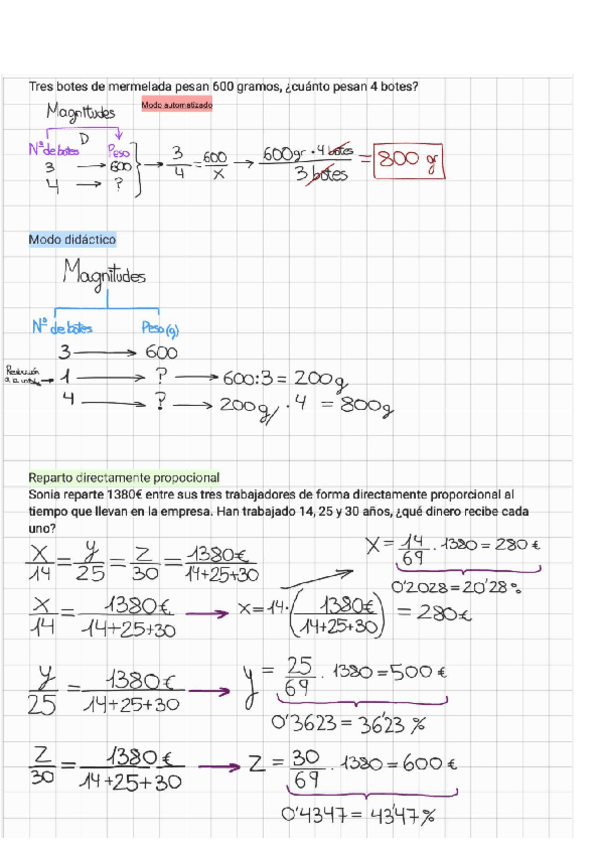 Tres botes de mermelada pesan 600 gramos, ¿cuánto pesan 4 botes?
Modo automatizado
Magnitudes
D
Nº de botes Peso
3 → 600
4 → ?
→ 3/4 = 600/x → 600gr · 4 botes / 3 botes = 800 gr
Modo didáctico
Magnitudes
Nº de botes Peso (g)
3 → 600
Reducción a la unidad → 1 → ? → 600:3 = 200g
4 → ? → 200g · 4 = 800g
Reparto directamente propocional
Sonia reparte 1380€ entre sus tres trabajadores de forma directamente proporcional al
tiempo que llevan en la empresa. Han trabajado 14, 25 y 30 años, ¿qué dinero recibe cada
uno?
x/14 = y/25 = z/30 = 1380€/14+25+30
x = 14/69 · 1380 = 280 €
0'2028 = 20'28 %
x/14 = 1380€/14+25+30 → x = 14 · (1380€/14+25+30) = 280€
y/25 = 1380€/14+25+30 → y = 25/69 · 1380 = 500 €
0'3623 = 36'23 %
z/30 = 1380€/14+25+30 → z = 30/69 · 1380 = 600 €
0'4347 = 43'47 %